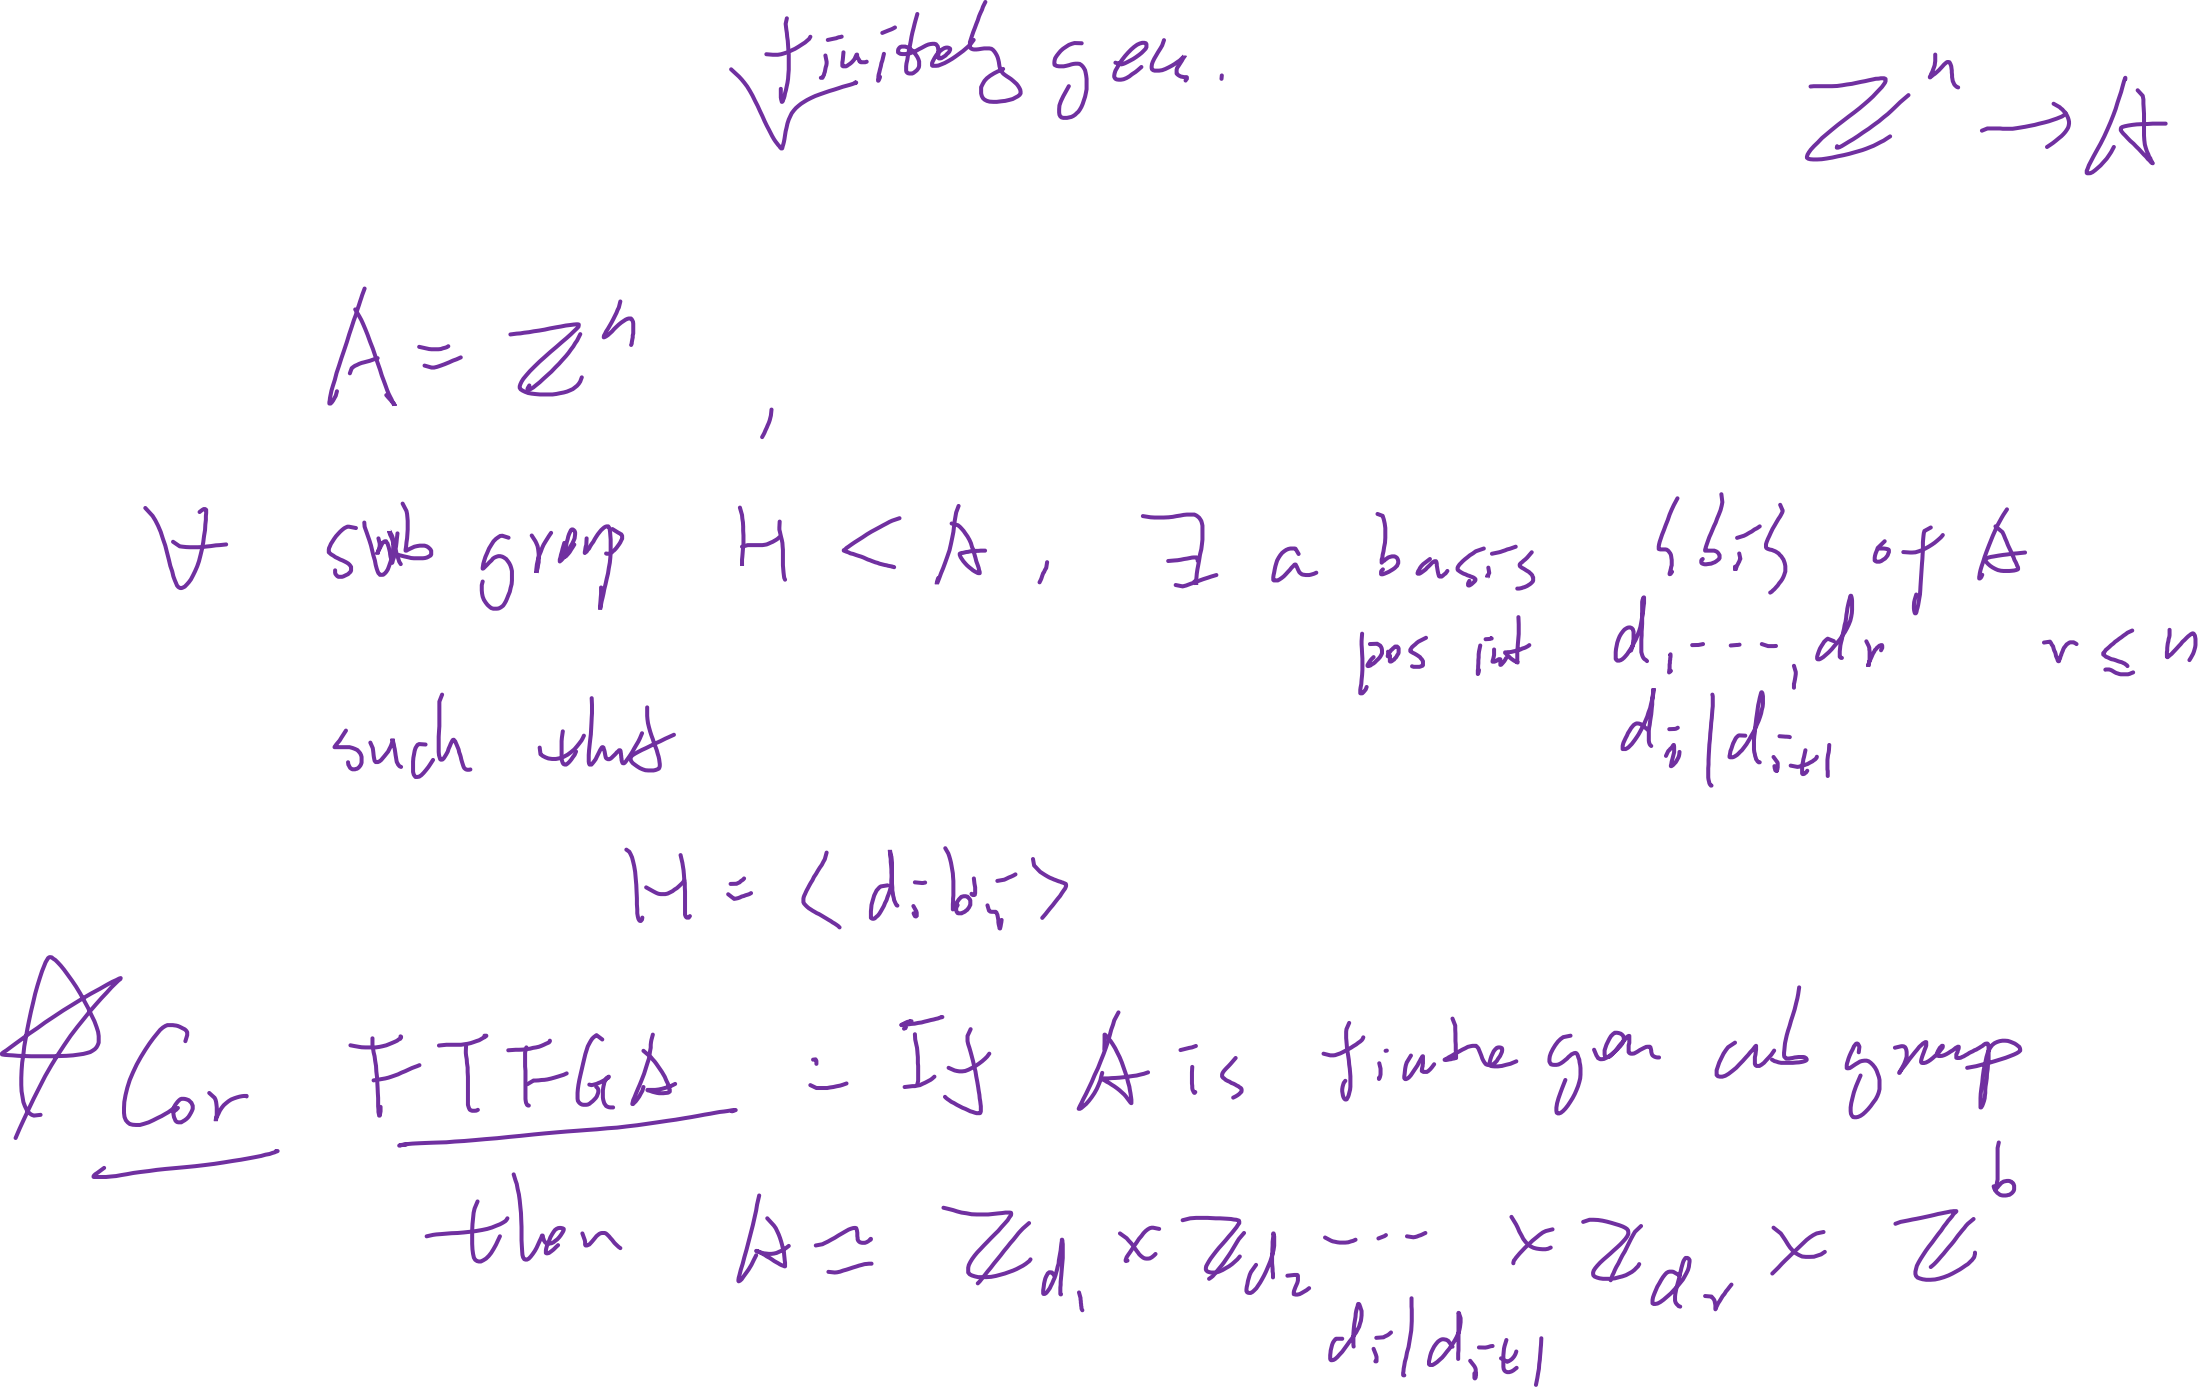 finitely gen.
ℤⁿ → A
A = ℤⁿ,
∀ subgroup H < A, ∃ a basis {bᵢ} of A
pos int d₁ ..., dᵣ r ≤ n
such that
dᵢ | dᵢ₊₁
H = <dᵢbᵢ>
Cor FTFGA = If A is finite gen ab group
then A ≃ ℤ_d₁ × ℤ_d₂ ... × ℤ_dᵣ × ℤᵇ
dᵢ | dᵢ₊₁